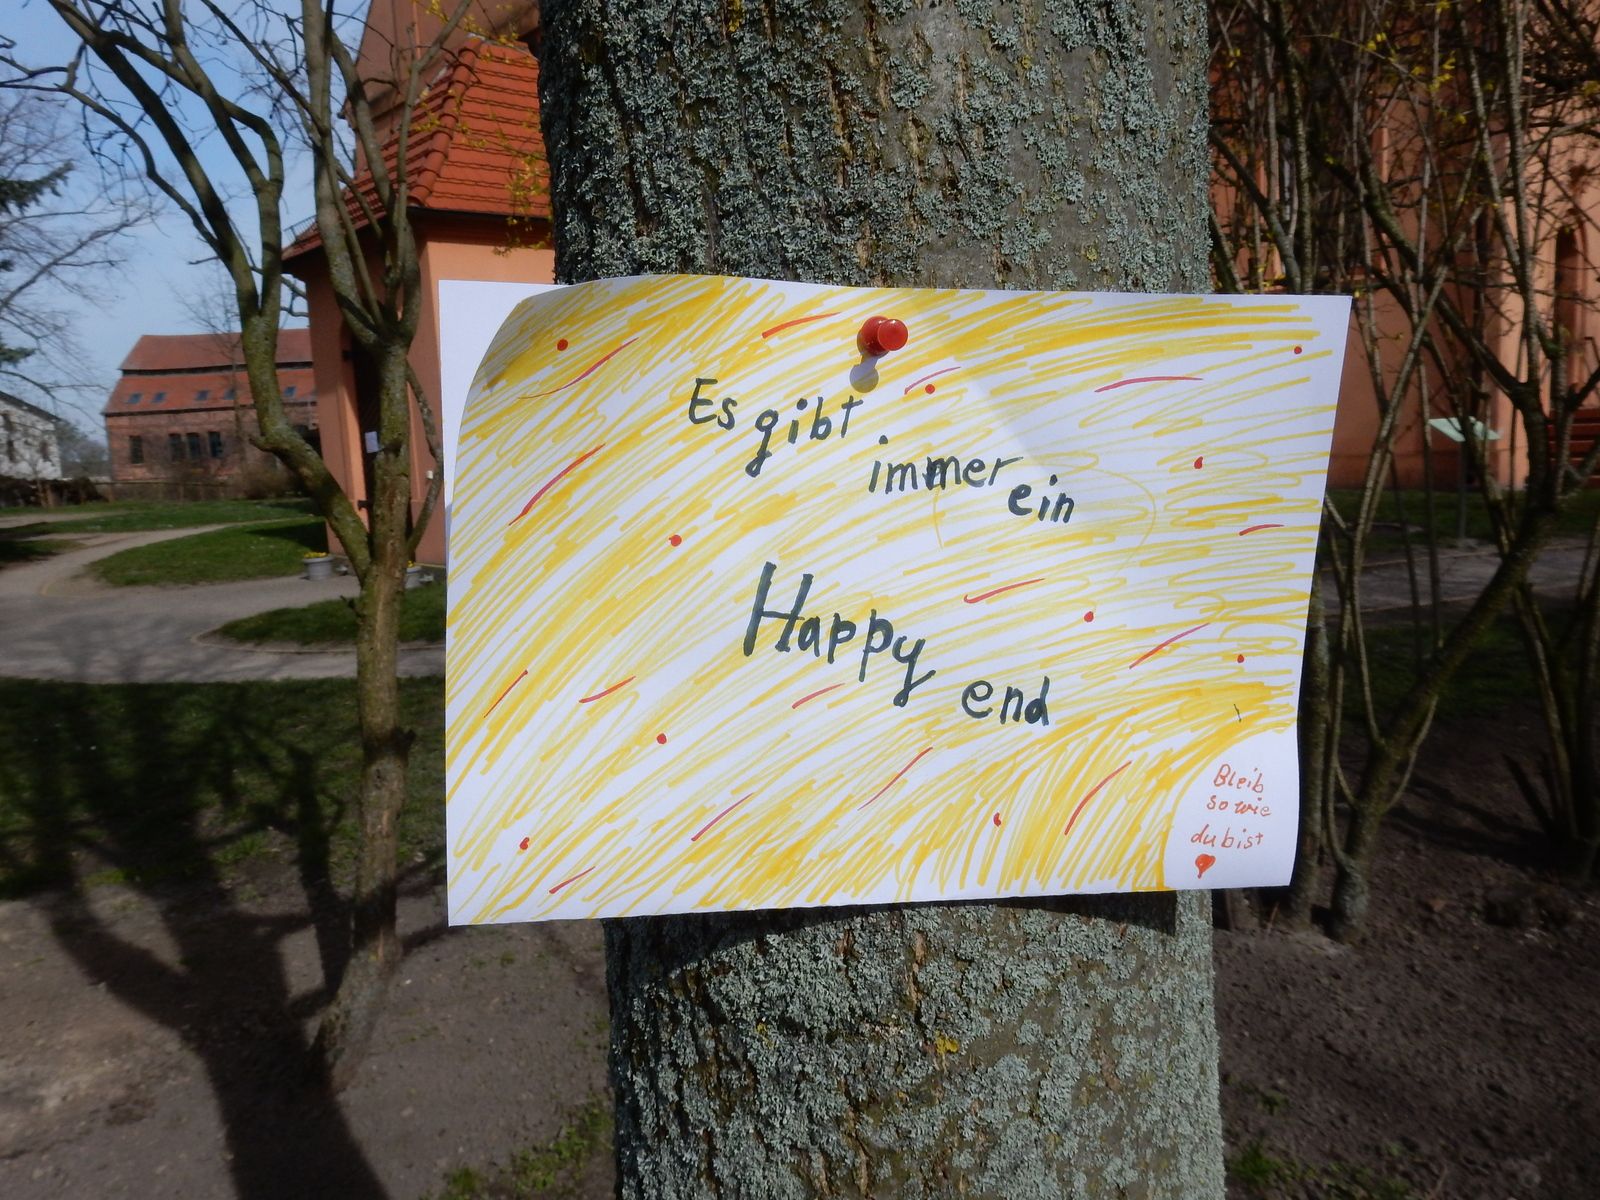 Es gibt
immer
ein
Happy
end
Bleib
so wie
du bist